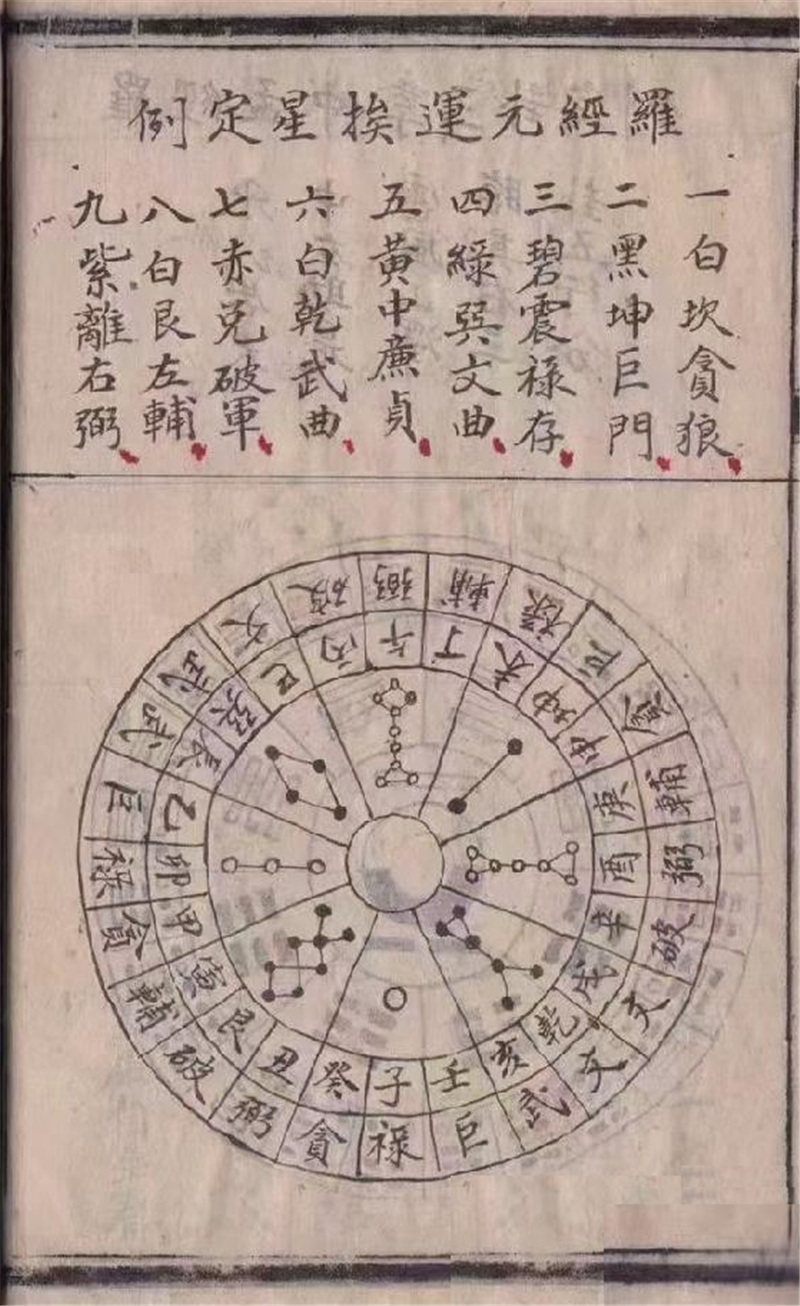 羅經元運挨星定例
一白坎貪狼
二黑坤巨門
三碧震禄存
四綠巽文曲
五黃中廉貞
六白乾武曲
七赤兌破軍
八白艮左輔
九紫離右弼
弼輔禄巨貪輔弼破文文武巨禄貪弼破輔貪禄巨武武文破
午丁未坤申庚酉辛戌乾亥壬子癸丑艮寅甲卯乙辰巽巳丙